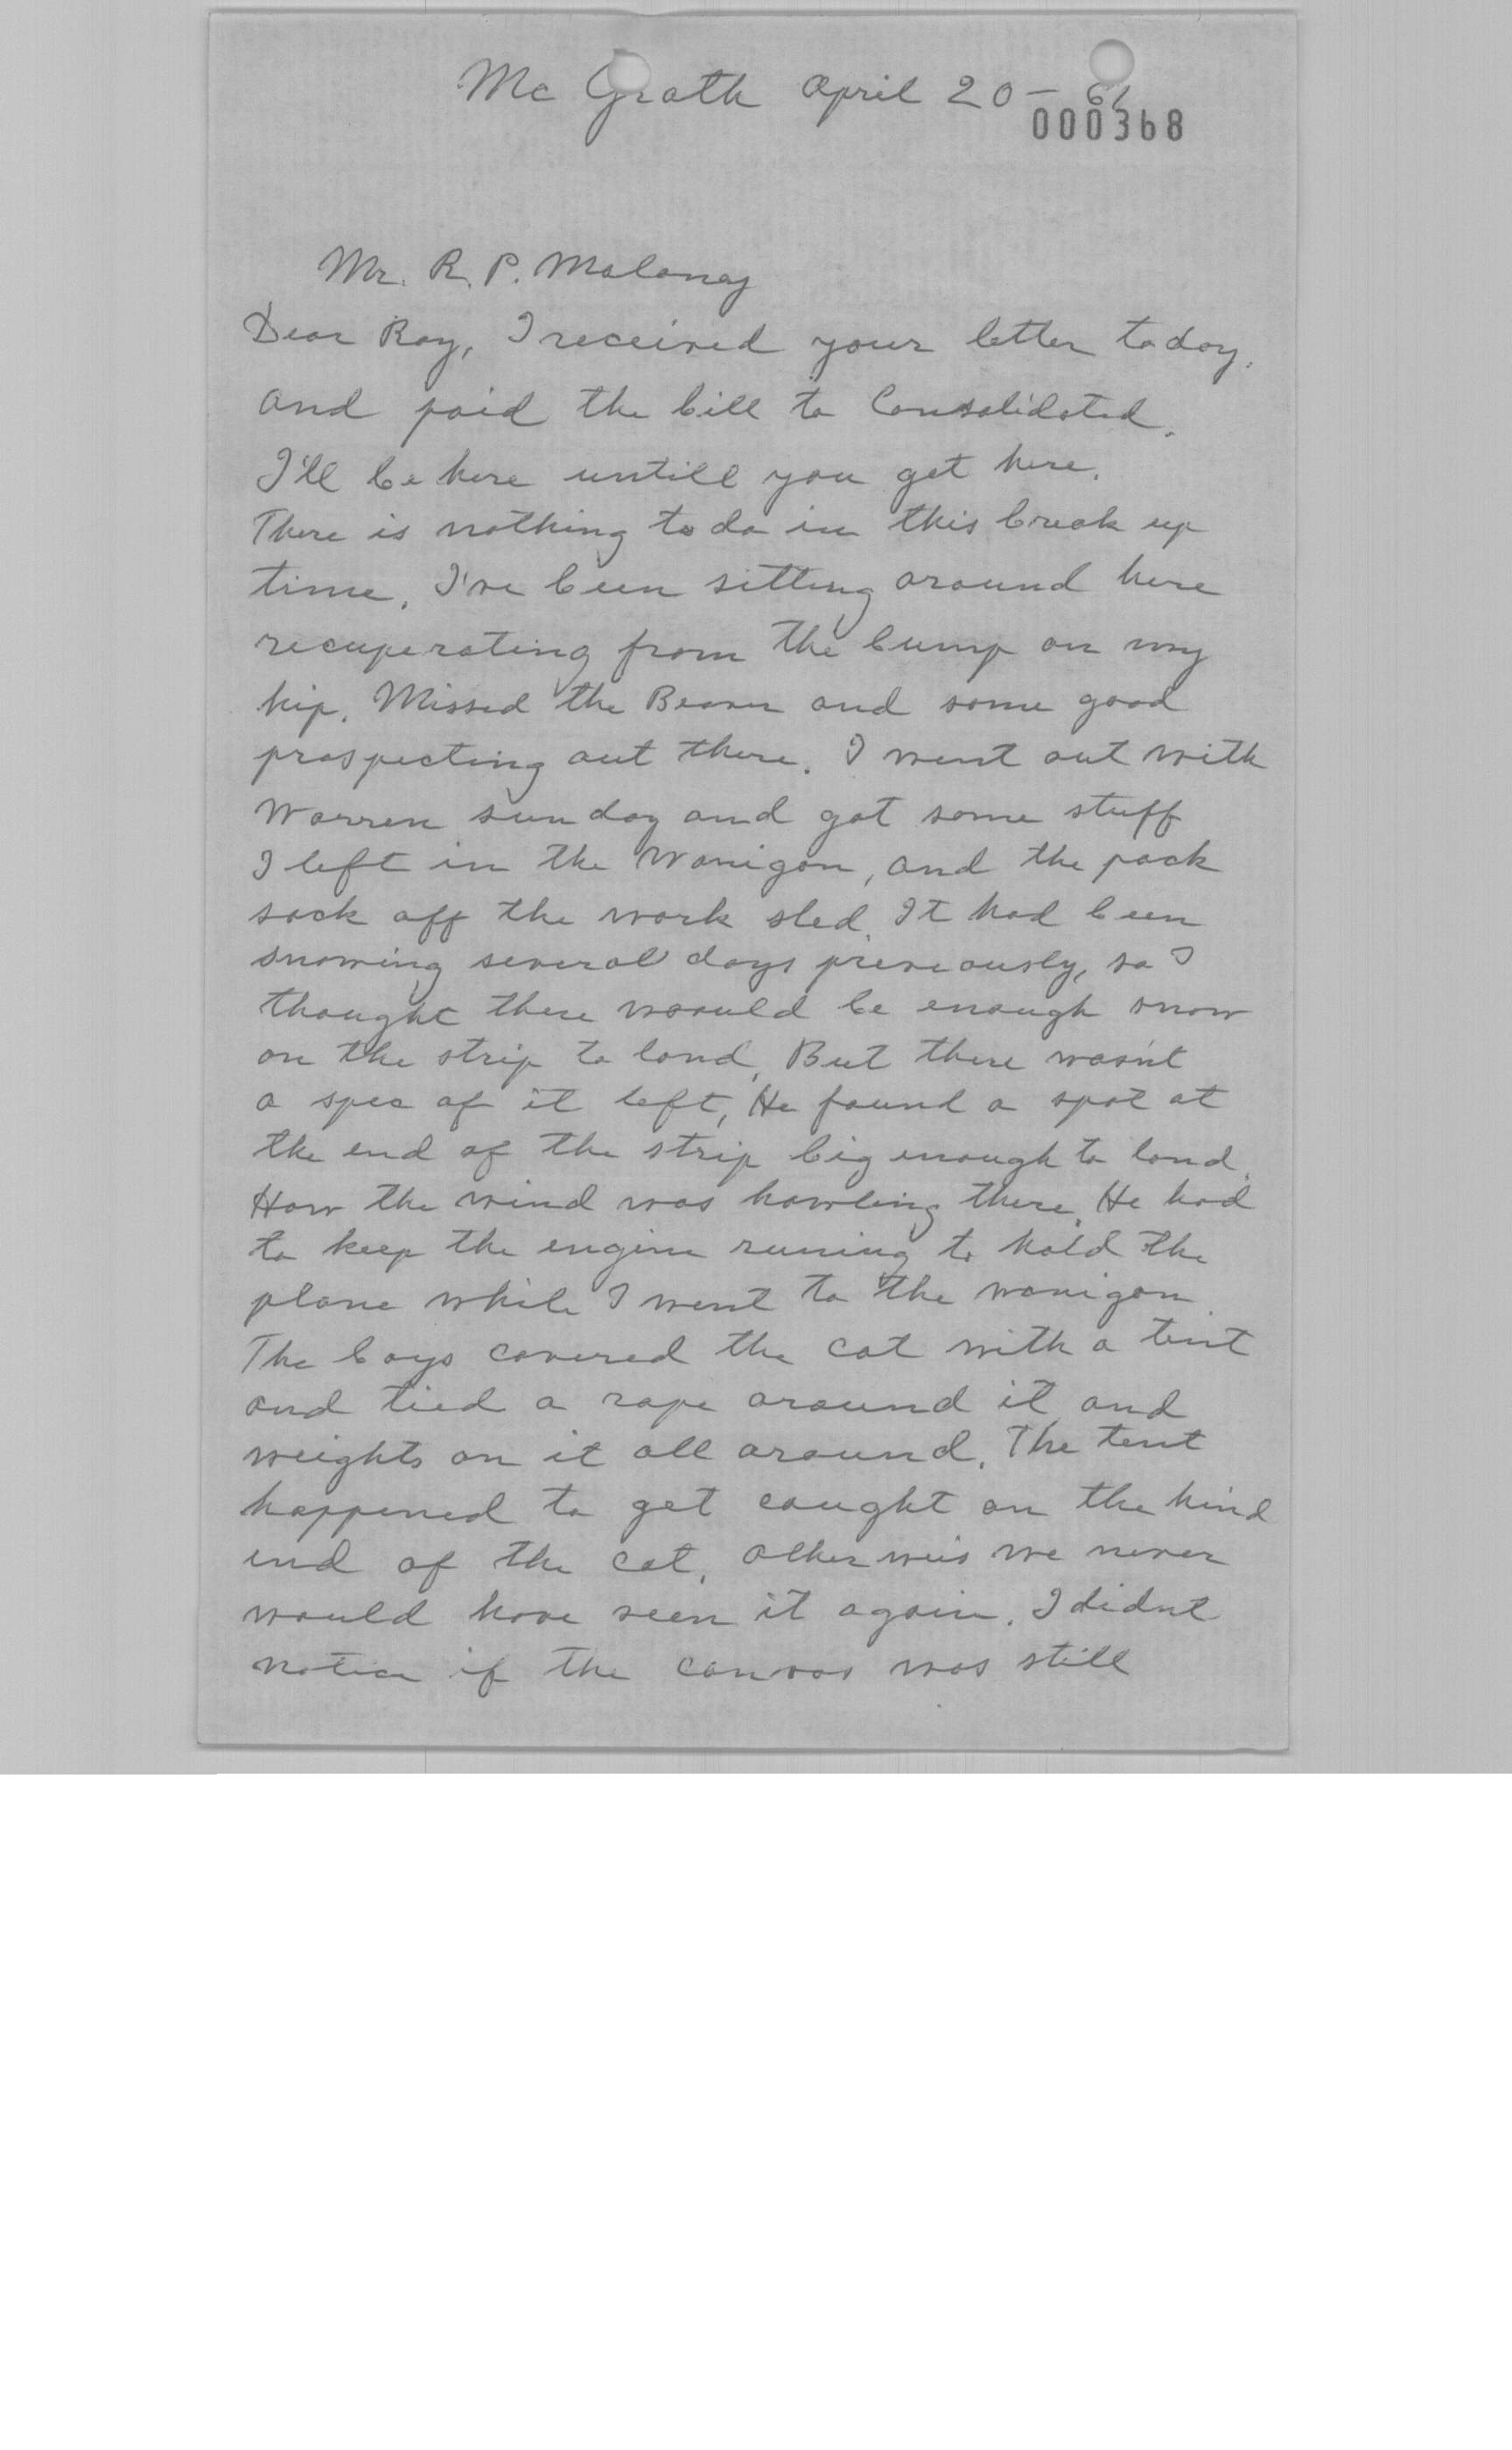 Mc Grath April 20 - 61
000368
Mr. R. P. Maloney
Dear Ray, I received your letter today.
and paid the bill to Consolidated.
I'll be here untill you get here.
There is nothing to do in this break up
time. I've been sitting around here
recuperating from the bump on my
hip. Missed the Beaver and some good
prospecting out there. I went out with
Warren sunday and got some stuff
I left in the Wanigan, and the pack
sack off the work sled. It had been
snowing several days previously, so I
thought there would be enough snow
on the strip to land. But there wasn't
a spec of it left, He found a spot at
the end of the strip big enough to land.
How the wind was howling there. He had
to keep the engine runing to hold the
plane while I went to the wanigan.
The boys covered the cat with a tent
and tied a rope around it and
weights on it all around. The tent
happened to get caught on the hind
end of the cat. other weis we never
would have seen it again. I didnt
notice if the canvas was still